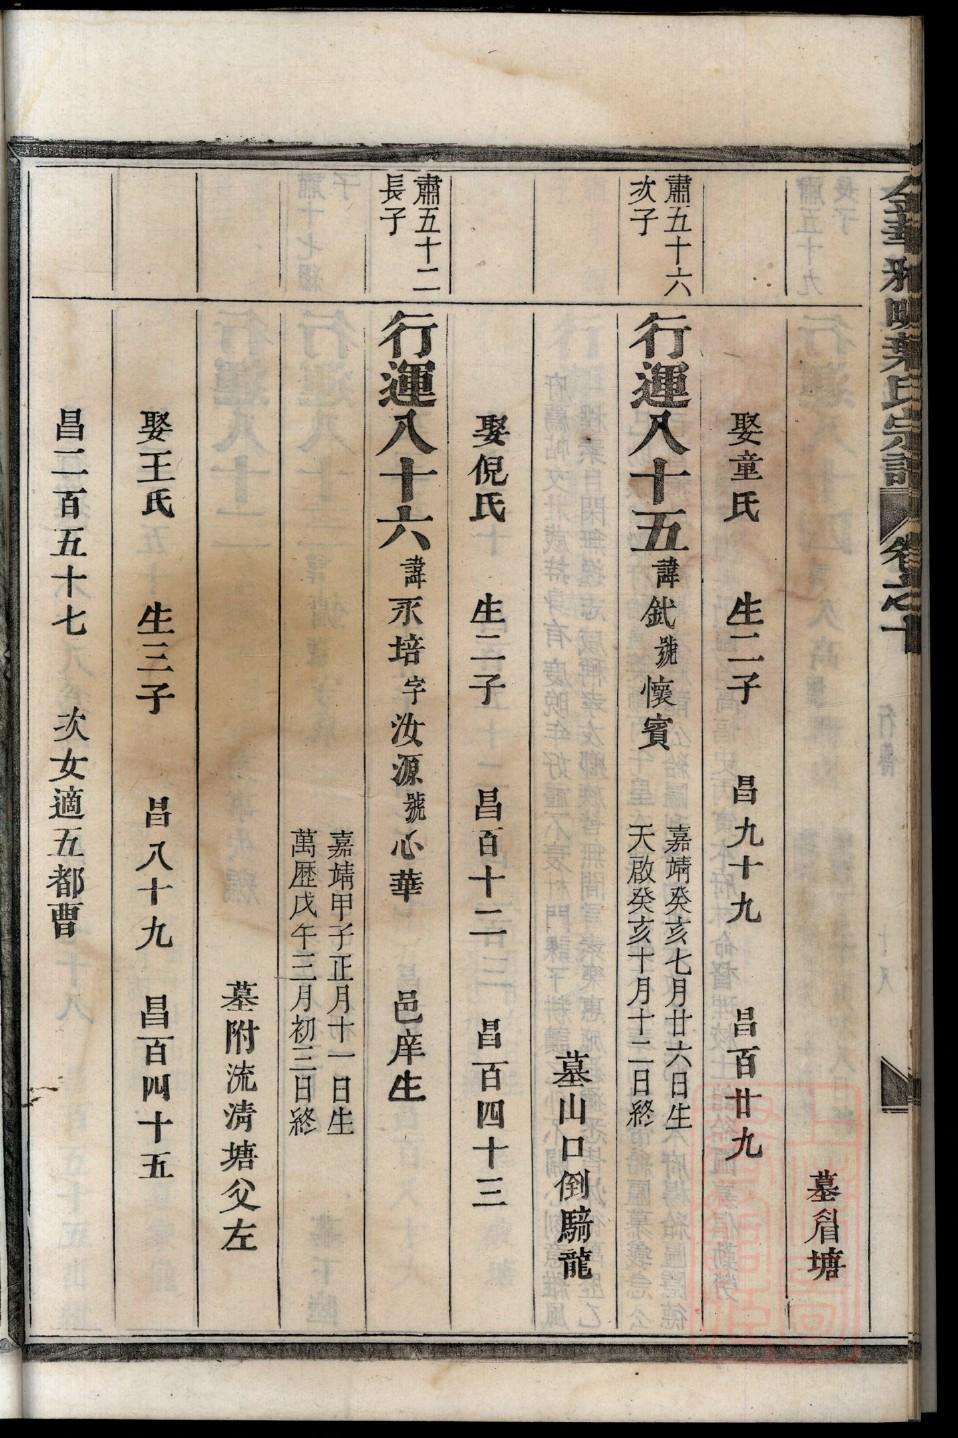 金華雅畈葉氏宗譜 卷之十
墓眉塘
娶童氏 生二子 昌九十九 昌百廿九
肅五十六
次子
行運八十五 諱釴 號懷賓
嘉靖癸亥七月廿六日生
天啟癸亥十月十二日終
墓山口倒騎龍
娶倪氏 生二子 昌百十二 昌百四十三
肅五十二
長子
行運八十六 諱永培 字汝源 號心華 邑庠生
嘉靖甲子正月十一日生
萬歷戊午三月初三日終
墓附流清塘父左
娶王氏 生三子 昌八十九 昌百四十五
昌二百五十七 次女適五都曹